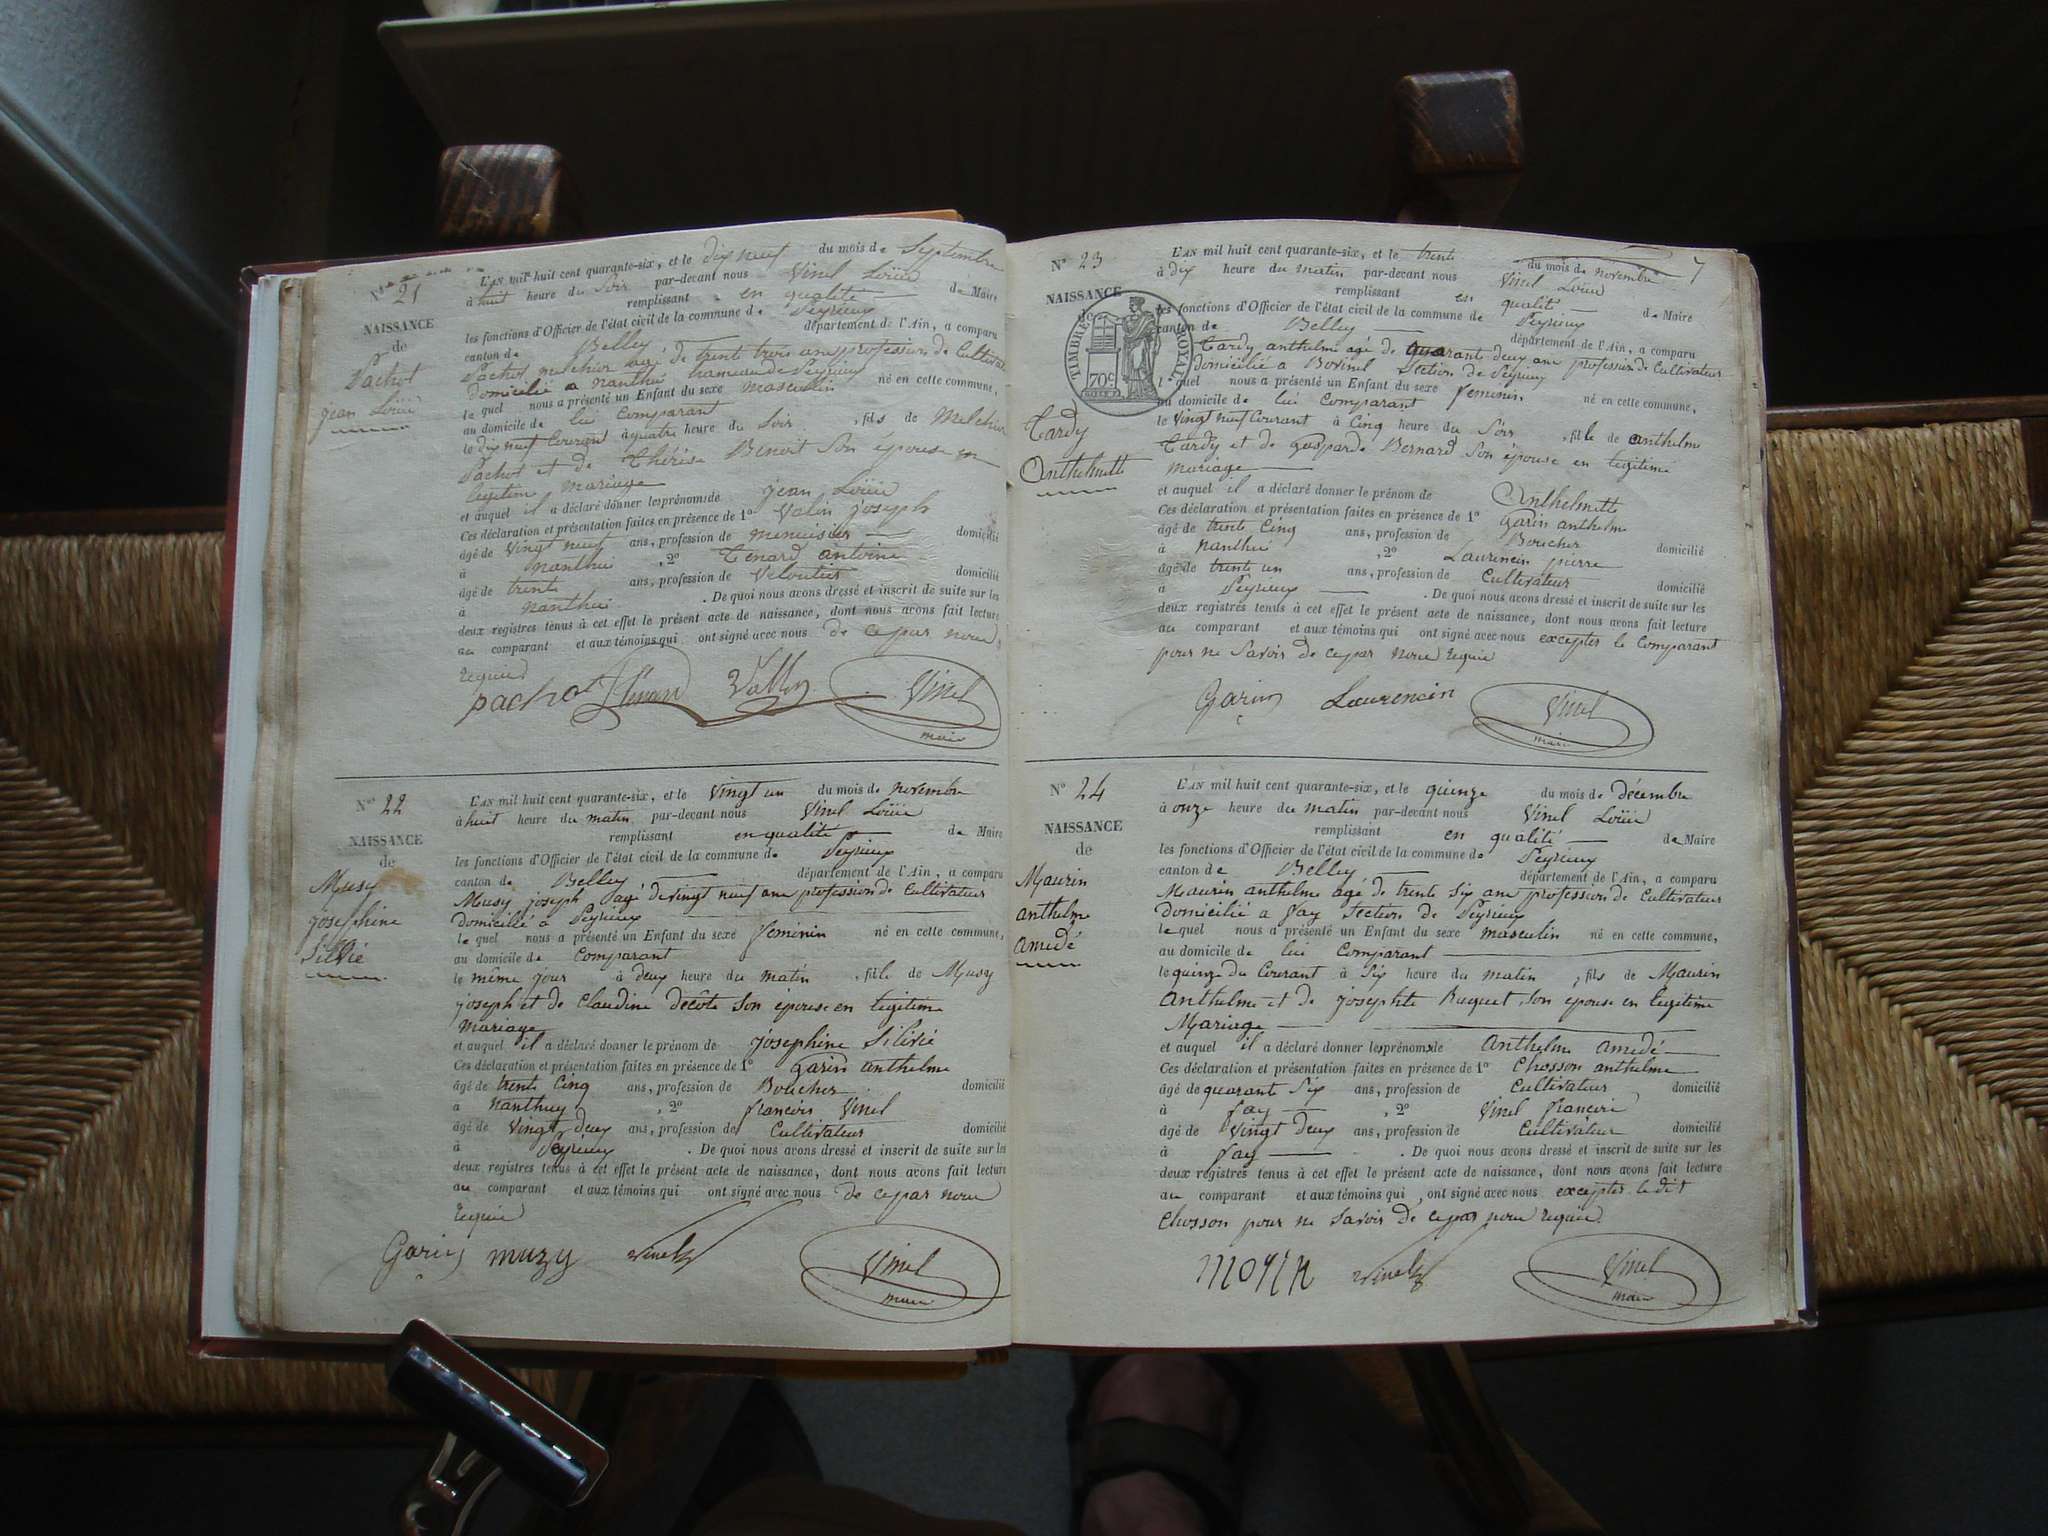 N° 21
NAISSANCE
de
Pachot
jean Loüis
L'AN mil huit cent quarante-six, et le dix neuf du mois de Septembre
à huit heure du Soir par-devant nous Vinel Loüis
remplissant en qualité de Maire
les fonctions d'Officier de l'état civil de la commune de Peyrieux
canton de Belley département de l'Ain, a comparu
Pachot melchior agé de trente trois ans profession de Cultivateur
domicilié a nanthui hameau de Peyrieux
le quel nous a présenté un Enfant du sexe masculin né en cette commune,
au domicile de lui Comparant
le dix neuf Courant à quatre heure du Soir, fils de Melchior
Pachot et de Thérèse Benoit Son épouse en
legitime mariage
et auquel il a déclaré donner les prénoms de jean Loüis
Ces déclaration et présentation faites en présence de 1° Valin joseph
âgé de vingt neuf ans, profession de menuisier domicilié
à nanthui, 2° Tenard antoine
âgé de trente ans, profession de Veloutier domicilié
à nanthui. De quoi nous avons dressé et inscrit de suite sur les
deux registres tenus à cet effet le présent acte de naissance, dont nous avons fait lecture
au comparant et aux témoins qui ont signé avec nous de ce par nous
requis
pachot Vallin Vinel
maire
N° 22
NAISSANCE
de
Musy
josephine
Silvie
L'AN mil huit cent quarante-six, et le vingt un du mois de novembre
à huit heure du matin par-devant nous Vinel Loüis
remplissant en qualité de Maire
les fonctions d'Officier de l'état civil de la commune de Peyrieux
canton de Belley département de l'Ain, a comparu
Musy joseph agé de vingt neuf ans profession de Cultivateur
domicilié à Peyrieux
le quel nous a présenté un Enfant du sexe feminin né en cette commune,
au domicile de Comparant
le même jour à deux heure du matin, fille de Musy
joseph et de Claudine decôte Son epouse en legitime
mariage
et auquel il a déclaré donner le prénom de josephine Silivie
Ces déclaration et présentation faites en présence de 1° garin anthelme
âgé de trente Cinq ans, profession de Boucher domicilié
à nanthuy, 2° françois Vinel
âgé de vingt deux ans, profession de Cultivateur domicilié
à Peyrieux. De quoi nous avons dressé et inscrit de suite sur les
deux registres tenus à cet effet le présent acte de naissance, dont nous avons fait lecture
au comparant et aux témoins qui ont signé avec nous de ce par nous
requis
Garin muzy vinel Vinel
maire
7
N° 23
NAISSANCE
de
TIMBRE ROYAL
70c
Tardy
Anthelmette
L'AN mil huit cent quarante-six, et le trente du mois de novembre
à dix heure du matin par-devant nous Vinel Loüis
remplissant en qualité de Maire
les fonctions d'Officier de l'état civil de la commune de Peyrieux
canton de Belley département de l'Ain, a comparu
Tardy anthelme agé de quarante deux ans profession de Cultivateur
Domicilié a Bovinel Section de Peyrieux
le quel nous a présenté un Enfant du sexe feminin né en cette commune,
au domicile de lui Comparant
le vingt neuf Courant à Cinq heure du Soir, fille de anthelme
Tardy et de gasparde Bernard Son épouse en legitime
mariage
et auquel il a déclaré donner le prénom de Anthelmette
Ces déclaration et présentation faites en présence de 1° garin anthelme
âgé de trente Cinq ans, profession de Boucher domicilié
à nanthui, 2° Laurencin pierre
âgé de trente un ans, profession de Cultivateur domicilié
à Peyrieux. De quoi nous avons dressé et inscrit de suite sur les
deux registres tenus à cet effet le présent acte de naissance, dont nous avons fait lecture
au comparant et aux témoins qui ont signé avec nous exceptés le Comparant
pour ne Savoir de ce par nous requis
Garin Laurencin Vinel
maire
N° 24
NAISSANCE
de
Maurin
anthelme
Amedé
L'AN mil huit cent quarante-six, et le quinze du mois de décembre
à onze heure du matin par-devant nous Vinel Loüis
remplissant en qualité de Maire
les fonctions d'Officier de l'état civil de la commune de Peyrieux
canton de Belley département de l'Ain, a comparu
Maurin anthelme agé de trente Six ans profession de Cultivateur
domicilié a fay Section de Peyrieux
le quel nous a présenté un Enfant du sexe masculin né en cette commune,
au domicile de lui Comparant
le quinze du Courant à Six heure du matin, fils de Maurin
Anthelme et de josephte Ruquet, Son épouse en legitime
Mariage
et auquel il a déclaré donner les prénoms de Anthelme Amedé
Ces déclaration et présentation faites en présence de 1° Chosson anthelme
âgé de quarante Six ans, profession de Cultivateur, domicilié
à fay, 2° Vinel françois
âgé de Vingt deux ans, profession de Cultivateur domicilié
à fay. De quoi nous avons dressé et inscrit de suite sur les
deux registres tenus à cet effet le présent acte de naissance, dont nous avons fait lecture
au comparant et aux témoins qui, ont signé avec nous exceptés le dit
Chosson pour ne Savoir de ce par nous requis.
vinel Vinel
maire